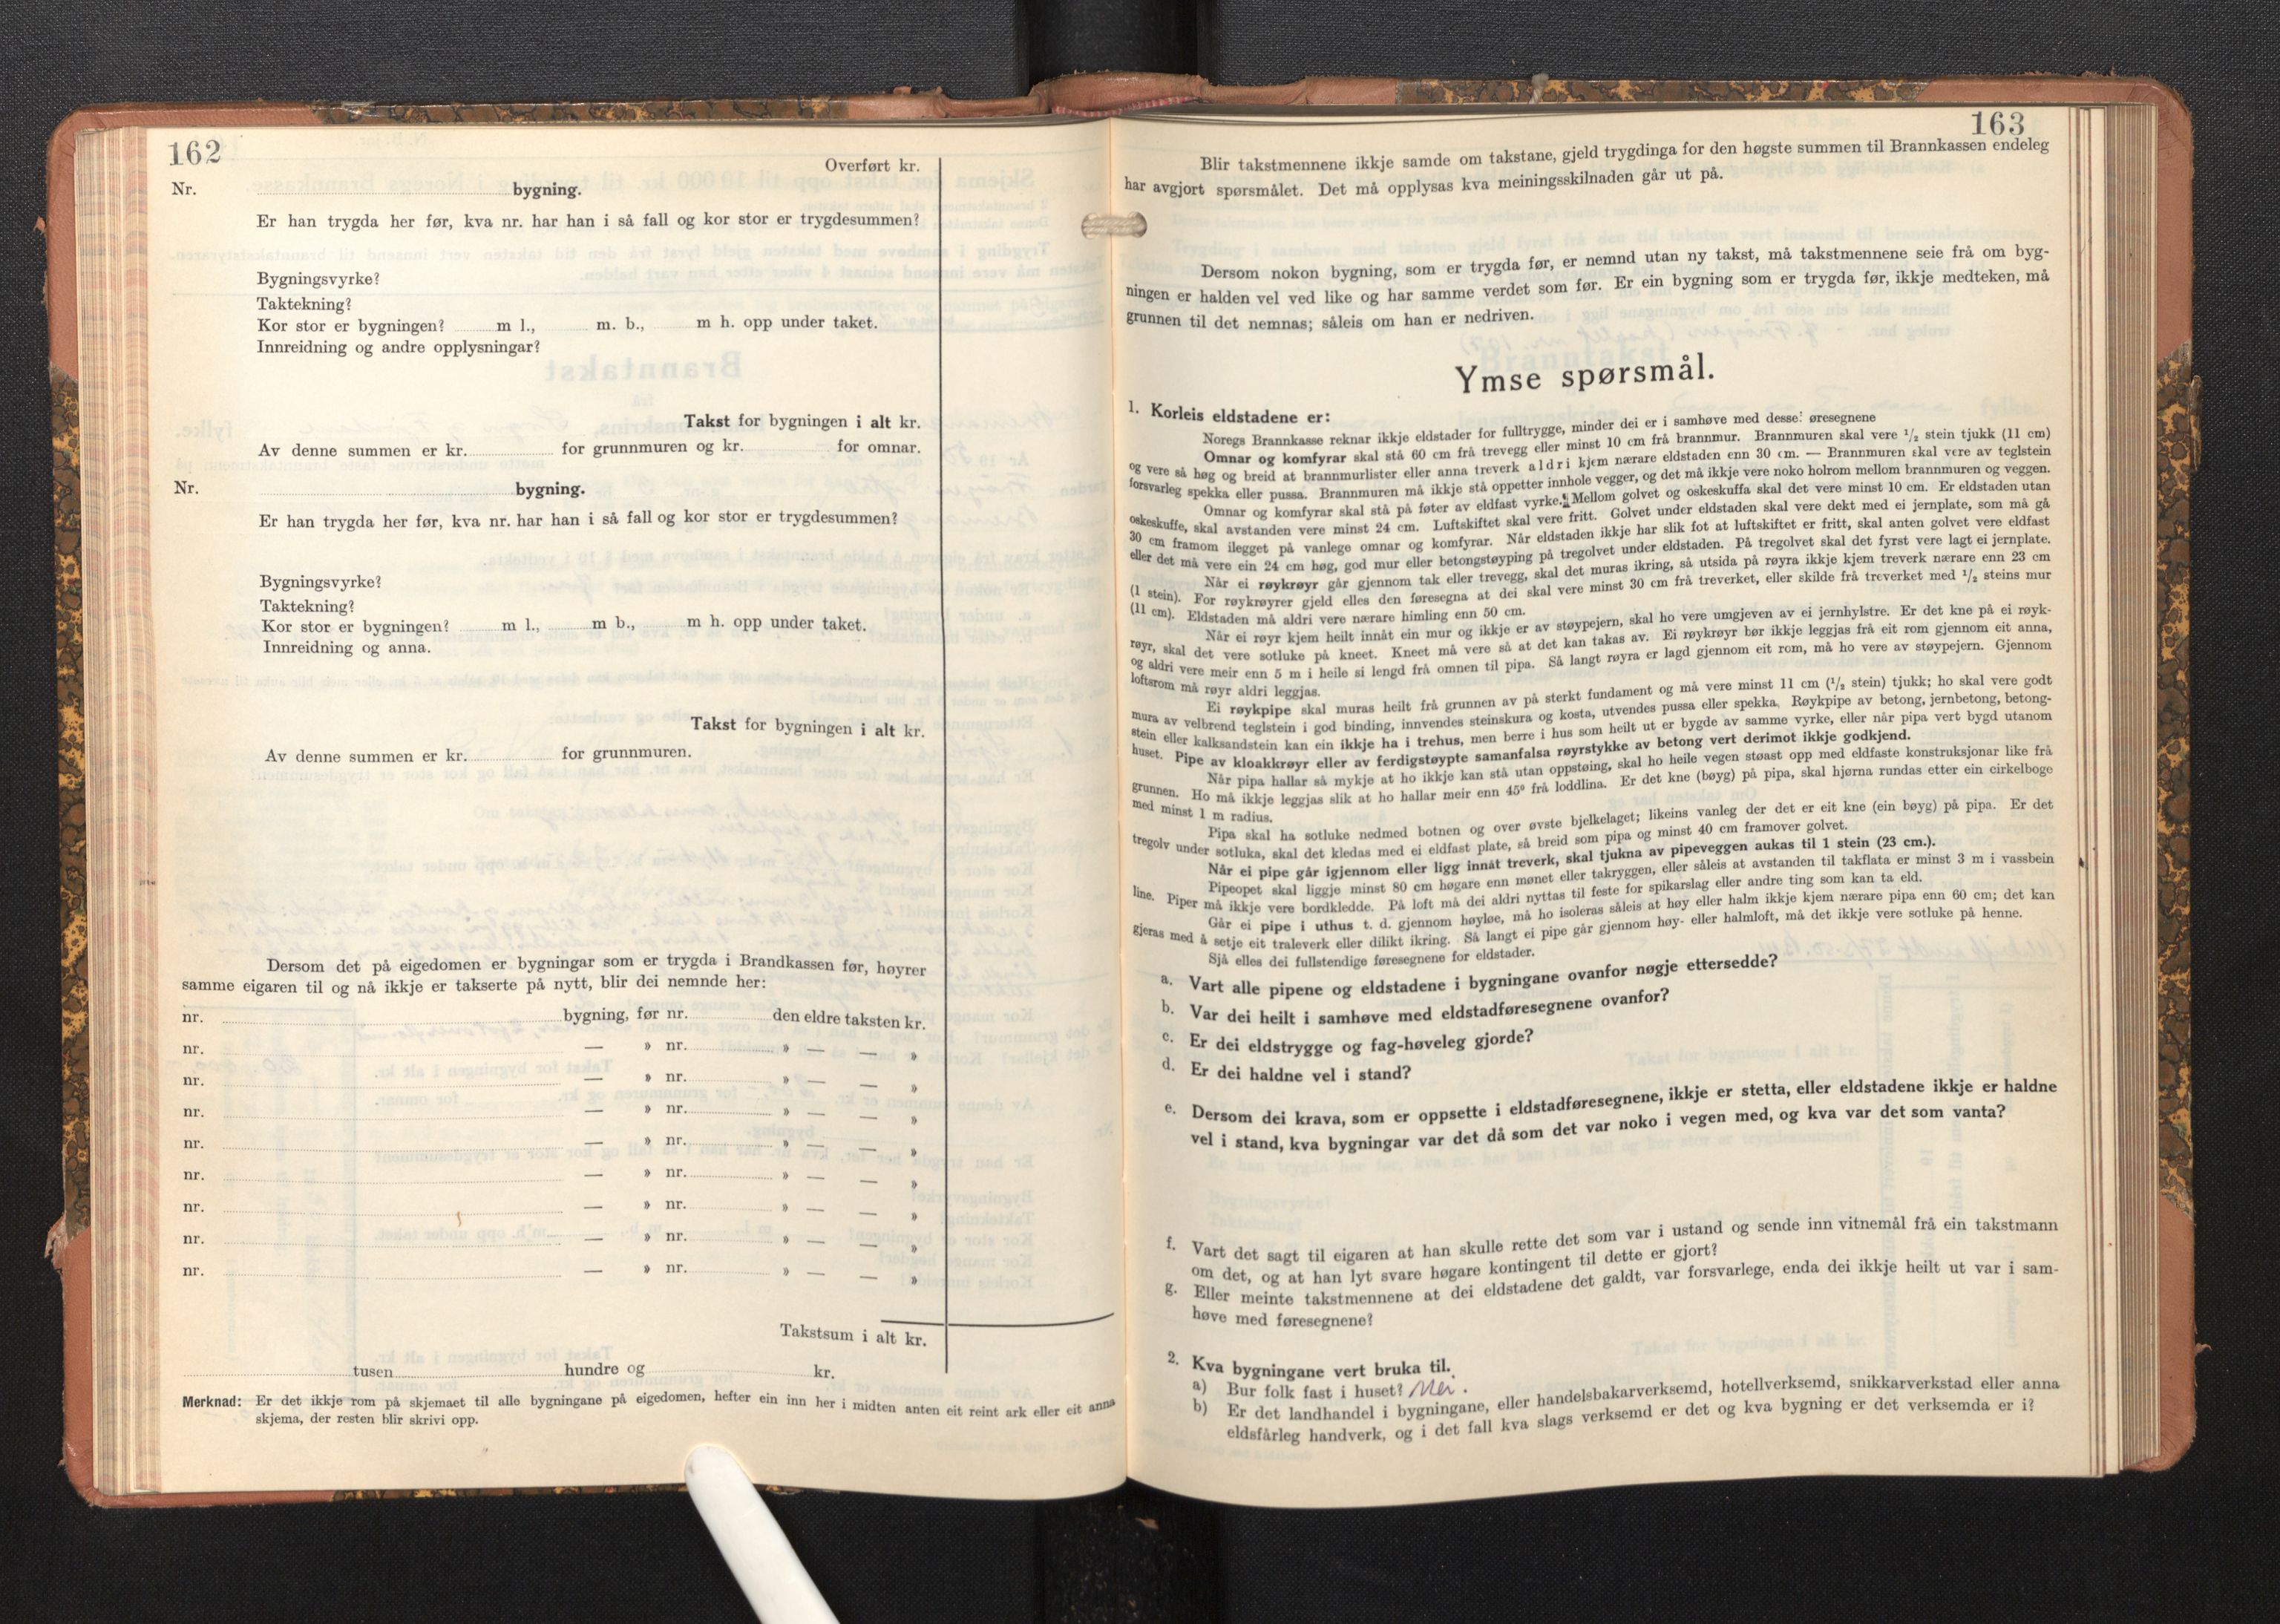 162
Overført kr.
Nr. bygning.
Er han trygda her før, kva nr. har han i så fall og kor stor er trygdesummen?
Bygningsvyrke?
Taktekning?
Kor stor er bygningen? m l., m. b., m h. opp under taket.
Innreidning og andre opplysningar?
Takst for bygningen i alt kr.
Av denne summen er kr. for grunnmuren og kr. for omnar.
Nr. bygning.
Er han trygda her før, kva nr. har han i så fall og kor stor er trygdesummen?
Bygningsvyrke?
Taktekning?
Kor stor er bygningen? m l., m b., m h. opp under taket.
Innreidning og anna.
Takst for bygningen i alt kr.
Av denne summen er kr. for grunnmuren.
Dersom det på eigedomen er bygningar som er trygda i Brandkassen før, høyrer
samme eigaren til og nå ikkje er takserte på nytt, blir dei nemnde her:
nr. bygning, før nr. den eldre taksten kr.
nr. — » nr. » — — »
nr. — » nr. » — — »
nr. — » nr. » — — »
nr. — » nr. » — — »
nr. — » nr. » — — »
nr. — » nr. » — — »
nr. — » nr. » — — »
nr. — » nr. » — — »
Takstsum i alt kr.
tusen hundre og kr.
Merknad: Er det ikkje rom på skjemaet til alle bygningane på eigedomen, hefter ein inn her i midten anten eit reint ark eller eit anna
skjema, der resten blir skrivi opp.
163
Blir takstmennene ikkje samde om takstane, gjeld trygdinga for den høgste summen til Brannkassen endeleg
har avgjort spørsmålet. Det må opplysas kva meiningsskilnaden går ut på.
Dersom nokon bygning, som er trygda før, er nemnd utan ny takst, må takstmennene seie frå om byg-
ningen er halden vel ved like og har samme verdet som før. Er ein bygning som er trygda før, ikkje medteken, må
grunnen til det nemnas; såleis om han er nedriven.
Ymse spørsmål.
1. Korleis eldstadene er:
Noregs Brannkasse reknar ikkje eldstader for fulltrygge, minder dei er i samhøve med desse: øresegnene
Omnar og komfyrar skal stå 60 cm frå trevegg eller minst 10 cm frå brannmur. Brannmuren skal vere 1/2 stein tjukk (11 cm)
og vere så høg og breid at brannmurlister eller anna treverk aldri kjem nærare eldstaden enn 30 cm. — Brannmuren skal vere av teglstein
forsvarleg spekka eller pussa. Brannmuren må ikkje stå oppetter innhole vegger, og det må ikkje vere noko holrom mellom brannmuren og veggen.
Omnar og komfyrar skal stå på føter av eldfast vyrke. Mellom golvet og oskeskuffa skal det vere minst 10 cm. Er eldstaden utan
oskeskuffe, skal avstanden vere minst 24 cm. Luftskiftet skal vere fritt. Golvet under eldstaden skal vere dekt med ei jernplate, som må gå
30 cm framom ilegget på vanlege omnar og komfyrar. Når eldstaden ikkje har slik fot at luftskiftet er fritt, skal anten golvet vere eldfast
eller det må vere ein 24 cm høg, god mur eller betongstøyping på tregolvet under eldstaden. På tregolvet skal det fyrst vere lagt ei jernplate.
Når ei røykrøyr går gjennom tak eller trevegg, skal det muras ikring, så utsida på røyra ikkje kjem treverk nærare enn 23 cm
(1 stein). For røykrøyrer gjeld elles den føresegna at dei skal vere minst 30 cm frå treverket, eller skilde frå treverket med 1/2 steins mur
(11 cm). Eldstaden må aldri vere nærare himling enn 50 cm.
Når ei røyr kjem heilt innåt ein mur og ikkje er av støypejern, skal ho vere umgjeven av ei jernhylstre. Er det kne på ei røyk-
røyr, skal det vere sotluke på kneet. Kneet må vere så at det kan takas av. Ei røykrøyr bør ikkje leggjas frå eit rom gjennom eit anna,
og aldri vere meir enn 5 m i heile si lengd frå omnen til pipa. Så langt røyra er lagd gjennom eit rom, må ho vere av støypejern. Gjennom
loftsrom må røyr aldri leggjas.
Ei røykpipe skal muras heilt frå grunnen av på sterkt fundament og må vere minst 11 cm (1/2 stein) tjukk; ho skal vere godt
mura av velbrend teglstein i god binding, innvendes steinskura og kosta, utvendes pussa eller spekka. Røykpipe av betong, jernbetong, betong-
stein eller kalksandstein kan ein ikkje ha i trehus, men berre i hus som heilt ut er bygde av samme vyrke, eller når pipa vert bygd utanom
huset. Pipe av kloakkrøyr eller av ferdigstøypte samanfalsa røyrstykke av betong vert derimot ikkje godkjend.
Når pipa hallar så mykje at ho ikkje kan stå utan oppstøing, skal ho heile vegen støast opp med eldfaste konstruksjonar like frå
grunnen. Ho må ikkje leggjas slik at ho hallar meir enn 45° frå loddlina. Er det kne (bøyg) på pipa, skal hjørna rundas etter ein cirkelboge
med minst 1 m radius.
Pipa skal ha sotluke nedmed botnen og over øvste bjelkelaget; likeins vanleg der det er eit kne (ein bøyg) på pipa. Er det
tregolv under sotluka, skal det kledas med ei eldfast plate, så breid som pipa og minst 40 cm framover golvet.
Når ei pipe går igjennom eller ligg innåt treverk, skal tjukna av pipeveggen aukas til 1 stein (23 cm.).
Pipeopet skal liggje minst 80 cm høgare enn mønet eller takryggen, eller såleis at avstanden til takflata er minst 3 m i vassbein
line. Piper må ikkje vere bordkledde. På loft må dei aldri nyttas til feste for spikarslag eller andre ting som kan ta eld.
Går ei pipe i uthus t. d. gjennom høyløe, må ho isoleras såleis at høy eller halm ikkje kjem nærare pipa enn 60 cm; det kan
gjeras med å setje eit traleverk eller dilikt ikring. Så langt ei pipe går gjennom høy- eller halmloft, må det ikkje vere sotluke på henne.
Sjå elles dei fullstendige føresegnene for eldstader.
a. Vart alle pipene og eldstadene i bygningane ovanfor nøgje ettersedde?
b. Var dei heilt i samhøve med eldstadføresegnene ovanfor?
c. Er dei eldstrygge og fag-høveleg gjorde?
d. Er dei haldne vel i stand?
e. Dersom dei krava, som er oppsette i eldstadføresegnene, ikkje er stetta, eller eldstadene ikkje er haldne
vel i stand, kva bygningar var det då som det var noko i vegen med, og kva var det som vanta?
f. Vart det sagt til eigaren at han skulle rette det som var i ustand og sende inn vitnemål frå ein takstmann
om det, og at han lyt svare høgare kontingent til dette er gjort?
g. Eller meinte takstmennene at dei eldstadene det galdt, var forsvarlege, enda dei ikkje heilt ut var i sam-
høve med føresegnene?
2. Kva bygningane vert bruka til.
a) Bur folk fast i huset? Nei.
b) Er det landhandel i bygningane, eller handelsbakarverksemd, hotellverksemd, snikkarverkstad eller anna
eldsfårleg handverk, og i det fall kva slags verksemd er det og kva bygning er det verksemda er i?